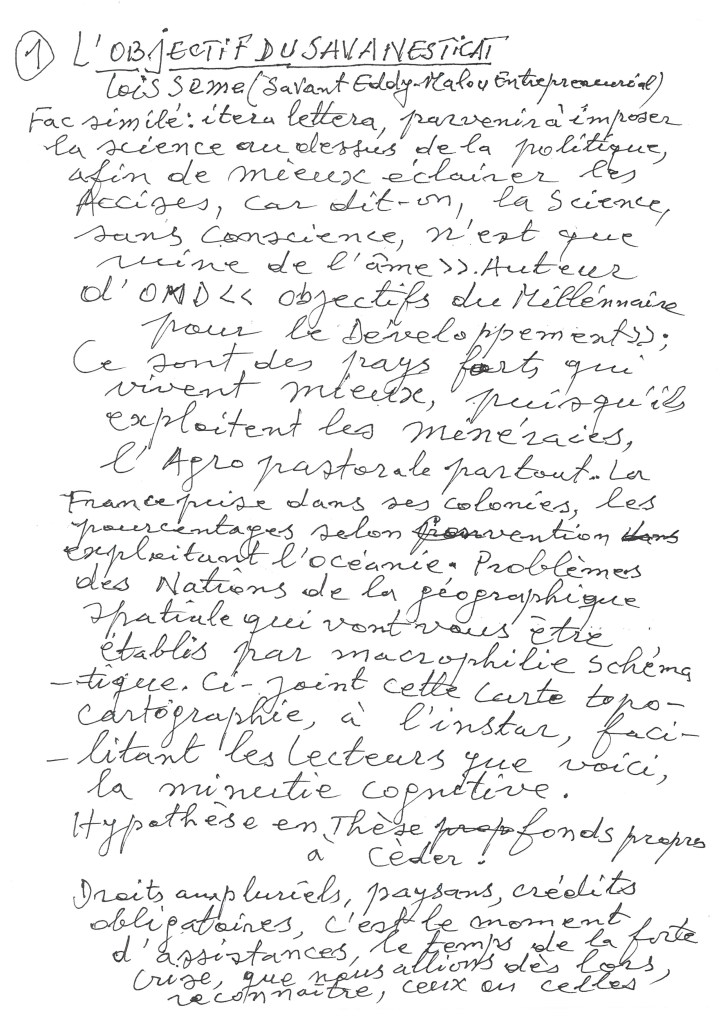 1 L'OBJECTIF DU SAVANESTICAT
loisseme (Savant Eddy-Malou Entrepreneurial)
Fac similé: itera lettera, parvenir à imposer
la science au dessus de la politique,
afin de mieux éclairer les
Accizes, car dit-on, la Science,
sans Conscience, n'est que
ruine de l'âme>>. Auteur
d'OMD<< objectifs du Millénnaire
pour le Développement>>;
Ce sont des pays forts qui
vivent mieux, puisqu'ils
exploitent les minéraies,
l'Agro pastorale partout.. La
France puise dans ses colonies, les
pourcentages selon convention
exploitant l'océanie. Problèmes
des Nations de la géographique
spatiale qui vont vous être
établis par macrophilie Schéma
-tique. Ci-Joint cette Carte topo-
cartographie, à l'instar, faci-
-litant les lecteurs que voici,
la minutie cognitive.
Hypothèse en Thèse fonds propres
à Cèder.
Droits ampluriels, paysans, crédits
obligatoires, c'est le moment
d'assistances, le temps de la forte
crise, que nous allions dès lors,
reconnaître, ceux ou celles